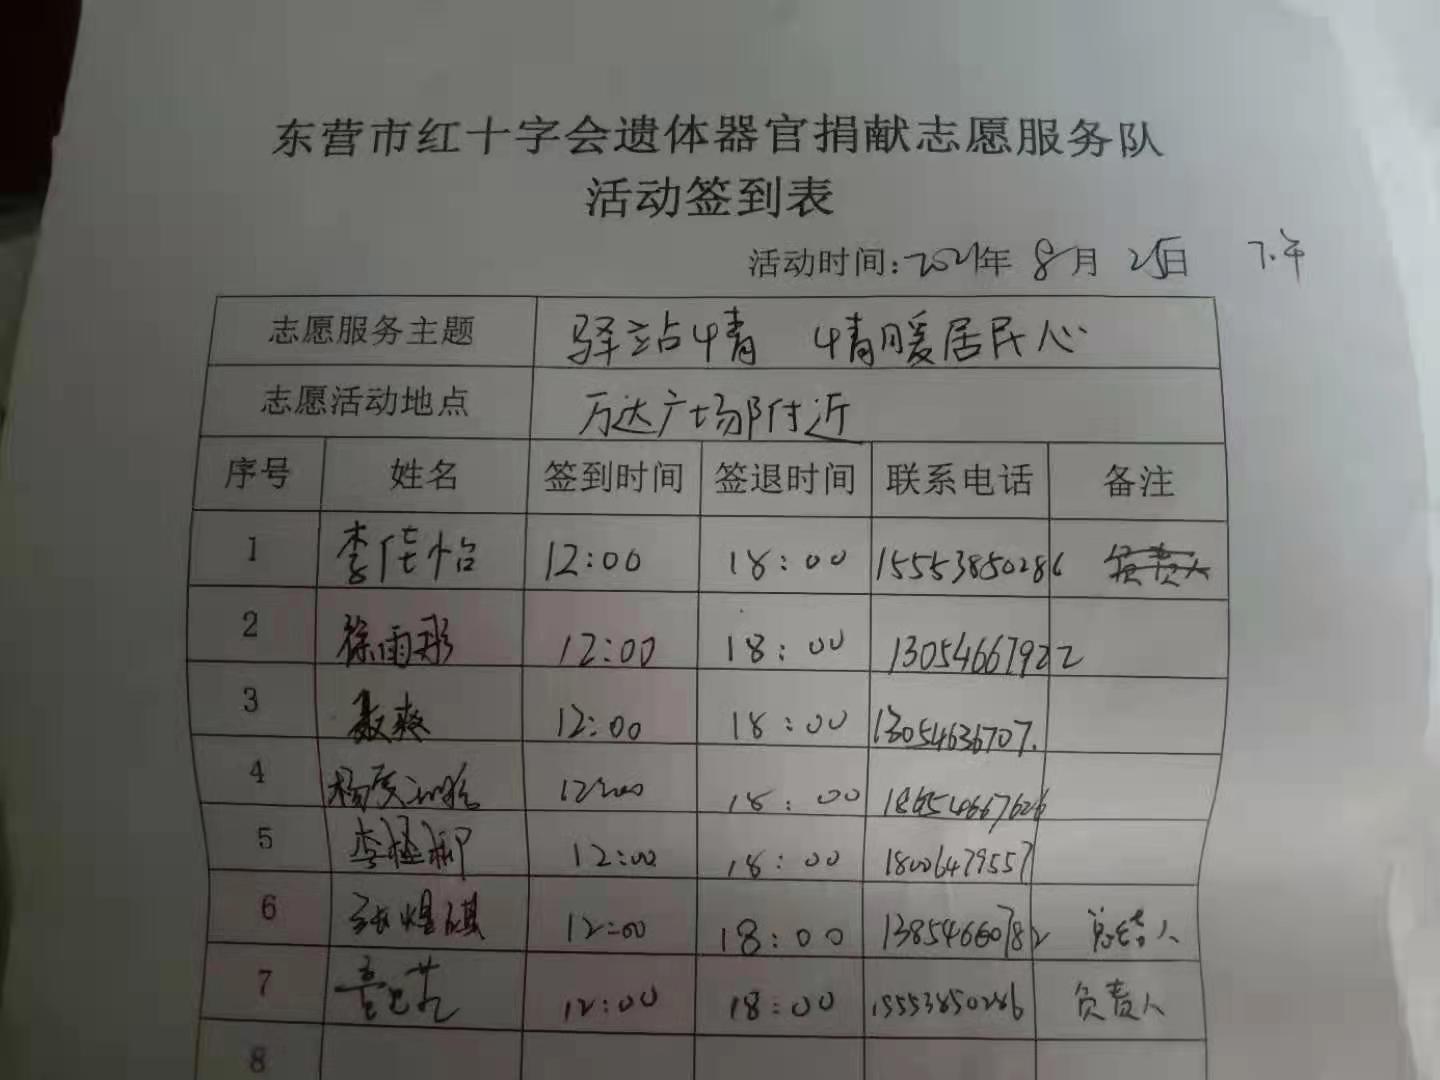 东营市红十字会遗体器官捐献志愿服务队
活动签到表
活动时间:2021年 8月 25日 下午
志愿服务主题 驿站情 情暖居民心
志愿活动地点 万达广场附近
序号 姓名 签到时间 签退时间 联系电话 备注
1 李佳怡 12:00 18:00 15553850286 负责人
2 徐雨彤 12:00 18:00 13054667922
3 聂爽 12:00 18:00 13054636707
4 12:00 18:00 18654667626
5 12:00 18:00 18006479557
6 张煜祺 12:00 18:00 13854660782 总结人
7 12:00 18:00 15553850286 负责人
8